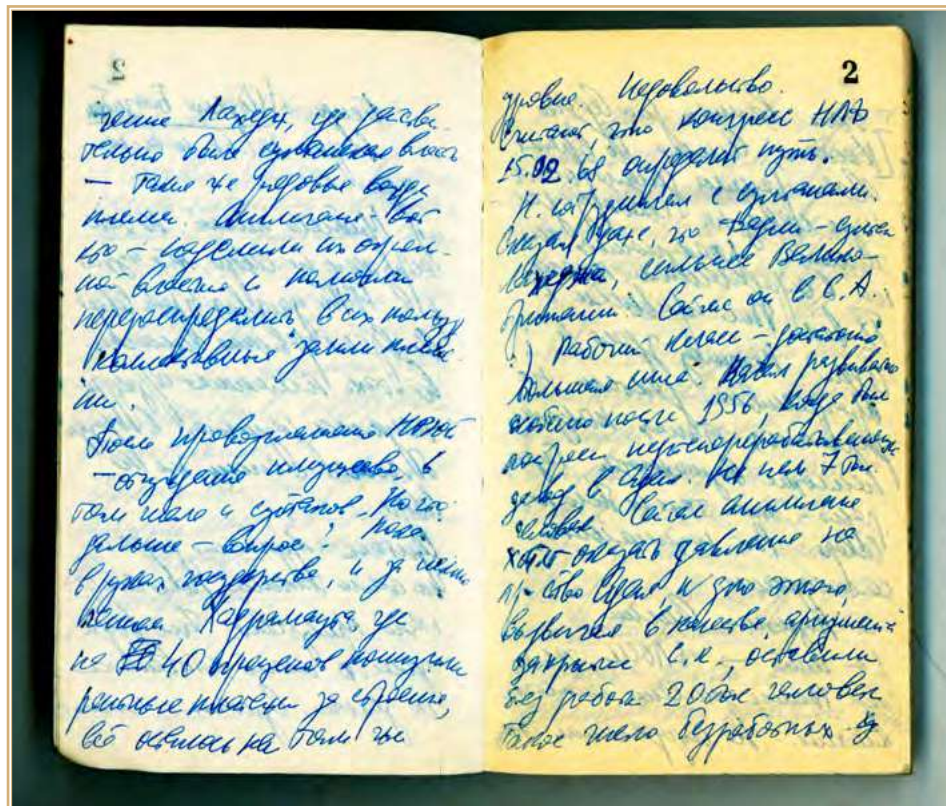 чение Лахедж, где действи-
тельно была султанская власть
— такие же рядовые вожди
племен. Англичане – вот
кто – наделили их огром-
ной властью и помогли
перераспределить в их пользу
коллективные земли племе-
ни.
После провозглашения НРЮЙ
— отчуждение имущества, в
том числе и султанов. Но что
дальше – вопрос! Пока
в руках государства, и за исклю-
чением Хадрамаута, где
на 40 процентов понизили
арендные платежи за строения,
всё осталось на том же
2
уровне. Недовольство.
Считают, что конгресс НЛФ
15.02.68 определит путь.
Н. сотрудничал с султанами.
Сказал даже, что Фадли – султан
Лахеджа, сильнее Велико-
британии. Сейчас он в С.А.
Рабочий класс – достаточно
большая сила. Начал развиваться
особенно после 1956, когда был
построен нефтеперерабатывающий
завод в Адене. На нем 7 тыс.
человек. Сейчас англичане
хотят оказать давление на
пр-ство Адена и для этого,
выдвигая в качестве аргумента
закрытие С.к., оставили
без работы 20 тыс человек
Такое число безработных